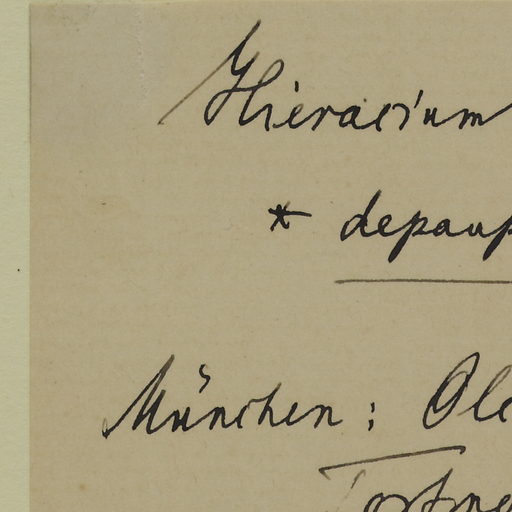 Hieracium
* depaup
München: Ole